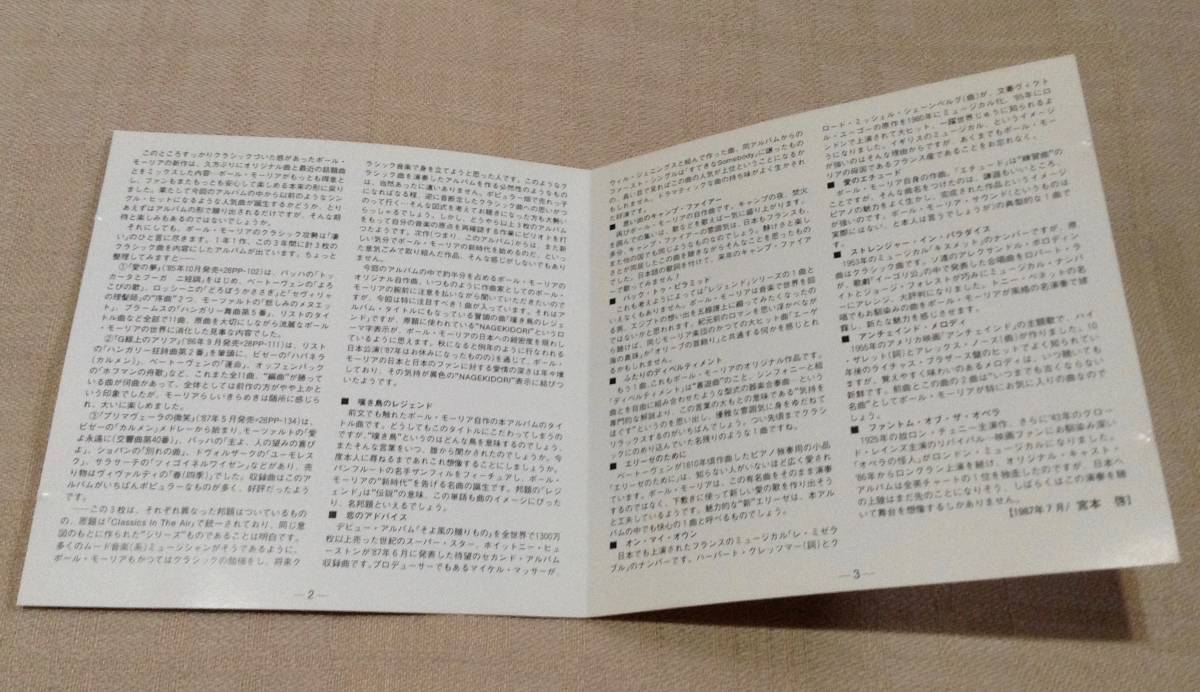 このところすっかりクラシックづいた感があったポール・
モーリアの新作は、久方ぶりにオリジナル曲と最近の話題曲
とをミックスした内容──ポール・モーリアがもっとも得意と
し、ファンもまたもっとも安心して楽しめる本来の形に戻り
ました。果たして今回のアルバムの中から以前のようなシン
グル・ヒットになるような人気曲が誕生するかどうか、とり
あえずはアルバムの形で贈り出されるだけですが、そんな期
待と楽しみもあるのではないでしょうか。
それにしても、ポール・モーリアのクラシック攻勢は「凄
い」のひと言に尽きます。1年1作、この3年間に計3枚の
クラシック曲を内容にしたアルバムが出ています。ちょっと
整理してみますと──
①「愛の夢」('85年10月発売=28PP-102)は、バッハの「トッ
カータとフーガ ニ短調」をはじめ、ベートーヴェンの「よろ
こびの歌」、ロッシーニの「どろぼうかささぎ」と「セヴィリャ
の理髪師」の"序曲"2つ、モーツァルトの「悲しみのメヌエッ
ト」、ブラームスの「ハンガリー舞曲第5番」、リストのタイ
トル曲など全部で11曲、原曲を大切にしながら流麗なポール
・モーリアの世界に消化した見事な内容でした。
②「G線上のアリア」('86年9月発売=28PP-111)は、リスト
の「ハンガリー狂詩曲第2番」を筆頭に、ビゼーの「ハバネラ
(カルメン)」、ベートーヴェンの「運命」、オッフェンバック
の「ホフマンの舟歌」など、これまた全11曲、"編曲"が勝って
いる曲が何曲かあって、全体としては前作の方がやや上かと
いう印象でしたが、モーリアらしいきらめきは随所に感じら
れ、大いに楽しめました。
③「プリマヴェーラの微笑」('87年5月発売=28PP-134)は、
ビゼーの「カルメン」メドレーから始まり、モーツァルトの「愛
よ永遠に(交響曲第40番)」、バッハの「主よ、人の望みの喜び
よ」、ショパンの「別れの曲」、ドヴォルザークの「ユーモレス
ク」、サラサーテの「ツィゴイネルワイゼン」などがあり、売
り物はヴィヴァルディの「春(四季)」でした。収録曲はこのア
ルバムがいちばんポピュラーなものが多く、好評だったよう
です。
──この3枚は、それぞれ異なった邦題はついているもの
の、原題は「Classics In The Air」で統一されており、同じ意
図のもとに作られた"シリーズ"ものであることは明白です。
多くのムード音楽(系)ミュージシャンがそうであるように、
ポール・モーリアもかつてはクラシックの勉強をし、将来ク
ラシック音楽で身を立てようと思った人です。このようなク
ラシック曲を演奏したアルバムを作る必然性のようなもの
は、当然あったに違いありません。ポピュラー畑で売れっ子
になればなる程、逆に自然とクラシック曲への思いがつ
のって行く──そんな図式を考えてお聴きになった方も大勢い
らっしゃるでしょう。しかし、どうやら以上3枚のアルバム
をもって自分の音楽の原点を再確認する作業にピリオドを打
ったようです。次作(つまり、このアルバム)からは、また新
しい気分でポール・モーリアの新時代を始めるのだ、といっ
た意気ごみで取り組んだ作品、そんな感じがしないでもあり
ません。
今回のアルバムの中で約半分を占めるポール・モーリアの
オリジナル作品は、いつものように作家としてのポール・
モーリアの腕前に注意を払いながら聞いていただきたいので
すが、今回は特に注目すべき1曲が入っています。それはア
ルバム・タイトルにもなっている冒頭の曲「嘆き鳥のレジェ
ンド」ですが、原題に使われている"NAGEKIDORI"というロ
ーマ字表示が、ポール・モーリアの日本への親密度を現わし
ているように思います。秋になると例年のように行なわれる
日本公演('87年はお休みになったものの)を通じて、ポール・
モーリアの日本と日本のファンに対する愛情の深さは年々増
しており、その気持が異色の"NAGEKIDORI"表示に結びつ
いたようです。
■ 嘆き鳥のレジェンド
前文でも触れたポール・モーリア自作の本アルバムのタイ
トル曲です。どうしてもこのタイトルにこだわってしまうの
ですが、"嘆き鳥"というのはどんな鳥を意味するのでしょう。
またそんな言葉をいつ、誰から聞かされたのでしょうか。今
度本人に尋ねるまであれこれ想像することにしましょうか。
パンフルートの名手ザンフィルをフィーチュアし、ポール・
モーリアの"新時代"を告げる名曲の誕生です。邦題の「レジ
ェンド」は"伝説"の意味、この単語も曲のイメージにぴった
り、名邦題といえるでしょう。
■ 恋のアドバイス
デビュー・アルバム「そよ風の贈りもの」を全世界で1300万
枚以上売った世紀のスーパー・スター、ホイットニー・ヒュ
ーストンが'87年6月に発表した待望のセカンド・アルバム
収録曲です。プロデューサーでもあるマイケル・マッサーが、
─2─
ウィル・ジェニングスと組んで作った曲、同アルバムからの
ファースト・シングルは「すてきなSomebody」に譲ったもの
の、長い目で見ればこの曲の人気が上位ということになるか
もしれません。ドラマティックな曲の持ち味がよく生かされ
た好演です。
■ 思い出のキャンプ・ファイアー
再びポール・モーリアの自作曲です。キャンプの夜、焚火
を囲んでの集いは、歌などを歌えば一気に盛り上がります。
多分、キャンプ・ファイアーの雰囲気は、日本もフランスも、
また他の国でも同じようなものなのでしょう。静けさと楽し
さとが同居したこの曲を聴きながらそんなことを思ったもの
です。日本語の歌詞を付けて、来年のキャンプ・ファイア
ーで歌ってみませんか?
■ バック・トゥ・ピラミッド
これも考えようによっては「レジェンド」シリーズの1曲と
いえなくもありません。ポール・モーリアは音楽で世界を回
る男、エジプトの想い出を五線譜上に綴ってみたくなったの
ではないかと思われます。紀元前のロマンを思い浮かべなが
ら聴けば、同じモーリア楽団のかつての大ヒット曲「エーゲ
海の真珠」が「オリーブの首飾り」と共通する何かを感じとれ
るかもしれません。
■ ふたりのディベルティメント
もう1曲、これもポール・モーリアのオリジナル作品です。
「ディベルティメント」は"喜遊曲"のこと、シンフォニーと組
曲とを自由に組み合わせたような型式の器楽合奏曲──という
専門的な解説より、この言葉の大もとの意味である"気持を
ほぐす"というのを思い出し、優雅な雰囲気に身をゆだねて
リラックスするのがいちばんでしょう。つい先頃までクラシ
ックにのめり込んでいた名残りのような1曲ですね。
■ エリーゼのために
ベートーヴェンが1810年頃作曲したピアノ独奏用の小品
「エリーゼのために」は、知らない人がいないほど広く愛され
ています。ポール・モーリアは、この有名曲をそのまま演奏
するのではなく、下敷きに使って新しい愛の歌を作り出そう
と工夫しているようです。魅力的な"新"エリーゼは、本アル
バムの中でも快心の1曲と呼べるものでしょう。
■ オン・マイ・オウン
日本でも上演されたフランスのミュージカル「レ・ミゼラ
ブル」のナンバーです。ハーバート・クレッツマー(詞)とク
ロード・ミッシェル・シェーンベルグ(曲)が、文豪ヴィクト
ル・ユーゴーの原作を1980年にミュージカル化、'85年にロ
ンドンで上演されて大ヒット、一躍世界じゅうに知られるよ
うになりました。イギリスのミュージカル、というイメージ
が強いのはそんな理由からですが、あくまでもポール・モー
リアの母国であるフランス産であることをお忘れなく。
■ 愛のエチュード
ポール・モーリア自身の作曲。「エチュード」は"練習曲"の
ことですが、そんな曲名をつけたのは、謙譲もいいところ、
ピアノの魅力をよく生かし、完成された作品というイメージ
が強いのです。ポール・モーリア・サウンドというものは
実際にはない、と本人は言うでしょうが)の典型的な1曲で
す。
■ ストレンジャー・イン・パラダイス
1953年のミュージカル「キスメット」のナンバーですが、原
曲はクラシック曲です。ソ連のアレクサンドル・ボロディン
が、歌劇「イーゴリ公」の中で発表した合唱曲をロバート・ラ
イトとジョージ・フォレストが巧みにミュージカル・ナンバ
ーにアレンジ、大評判になりました。トニー・ベネットの名
唱でもお馴染みの曲をポール・モーリアが風格の名演奏で披
露し、新たな魅力を感じさせます。
■ アンチェインド・メロディ
1955年のアメリカ映画「アンチェインド」の主題歌で、ハイ
・ザレット(詞)とアレックス・ノース(曲)が作りました。10
年後のライチャス・ブラザース盤のヒットでよく知られてい
ますが、覚えやすく味わいのあるメロディは、いつ聴いても
新鮮です。前曲とこの曲の2曲が"いつまでも古くならない
名曲"としてポール・モーリアが特にお気に入りの曲なので
しょう。
■ ファントム・オブ・ザ・オペラ
1925年の故ロン・チェニー主演作、さらに'43年のクロー
ド・レインズ主演のリバイバル──映画ファンにお馴染み深い
「オペラの怪人」がロンドン・ミュージカルになりました。
'86年秋からロングラン上演を続け、オリジナル・キャスト・
アルバムは全英チャートの1位を独走したのですが、日本へ
の上陸はまだ先のことになりそう、しばらくはこの演奏を聴
いて舞台を想像するしかありません。
【1987年7月/宮本 啓】
─3─